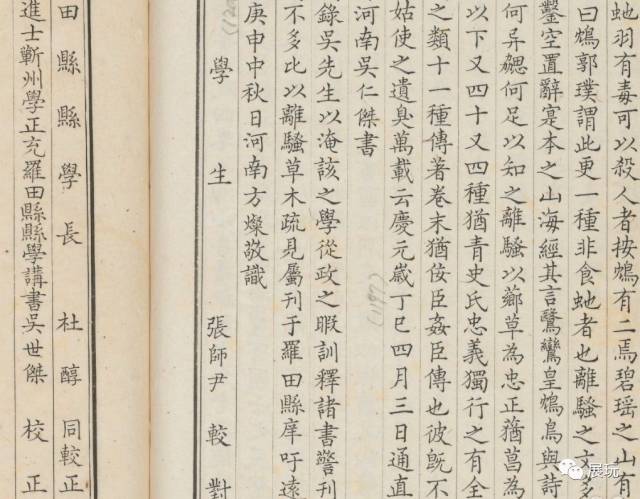 虵羽有毒可以殺人者按鴆有二焉碧瑶之山有
曰鴆郭璞謂此更一種非食虵者也離騷之文多
鑿空置辭寔本之山海經其言鷖鸞皇鴆鳥與詩
何异勰何足以知之離騷以薌草為忠正猶菖為
以下又四十又四種猶青史氏忠義獨行之有全
之類十一種傳著卷末猶佞臣姦臣傳也彼旣不
姑使之遺臭萬載云慶元歲丁巳四月三日通直
(1197)
河南吳仁傑書
錄吳先生以淹該之學從政之暇訓釋諸書詧刊
不多比以離騷草木疏見屬刊于羅田縣庠吁遠
庚申中秋日河南方燦敬識
學生 張師尹 較對
田縣縣學長 杜醇 同較正
進士蘄州學正充羅田縣縣學講書吳世傑 校正
展玩